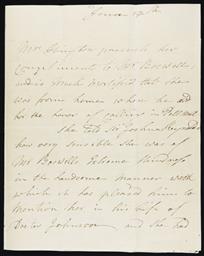 Mrs Abington presents her
Compliments to Mr Boswell
and is Much Mortified that she
was from home when he did
her the honor of calling in Pall Mall
She told Sr Joshua Reynolds
how very sensible she was of
Mr Boswells Extreme kindness
in the handsome manner with
which it has pleased him to
Mention her in his Life of
Docter Johnson and she had